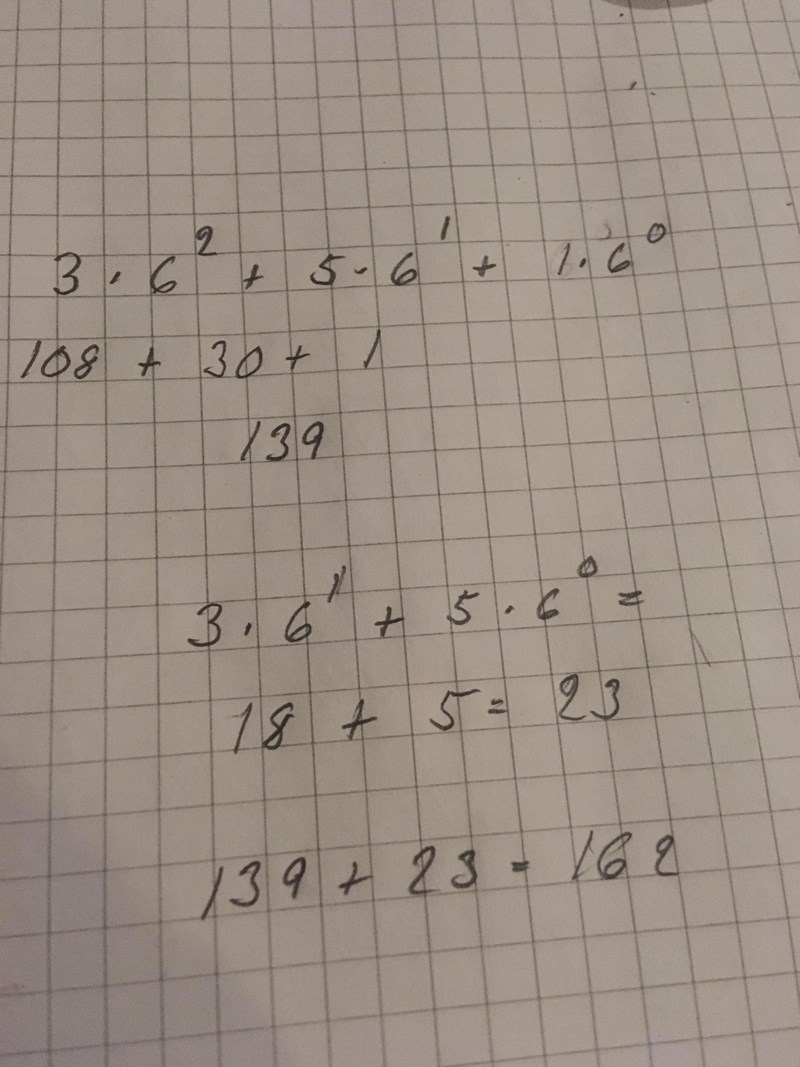 3 · 6² + 5 · 6¹ + 1 · 6⁰
108 + 30 + 1
139
3 · 6¹ + 5 · 6⁰ =
18 + 5 = 23
139 + 23 = 162